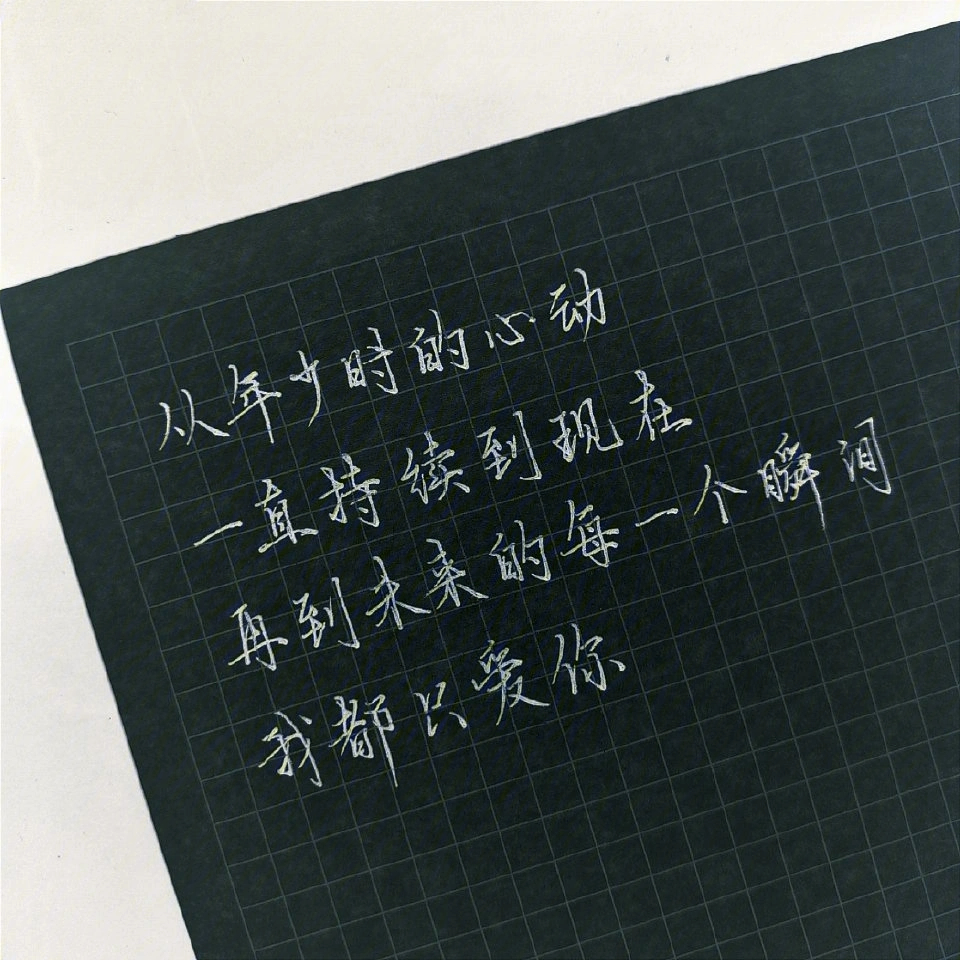 从年少时的心动
一直持续到现在
再到未来的每一个瞬间
我都只爱你